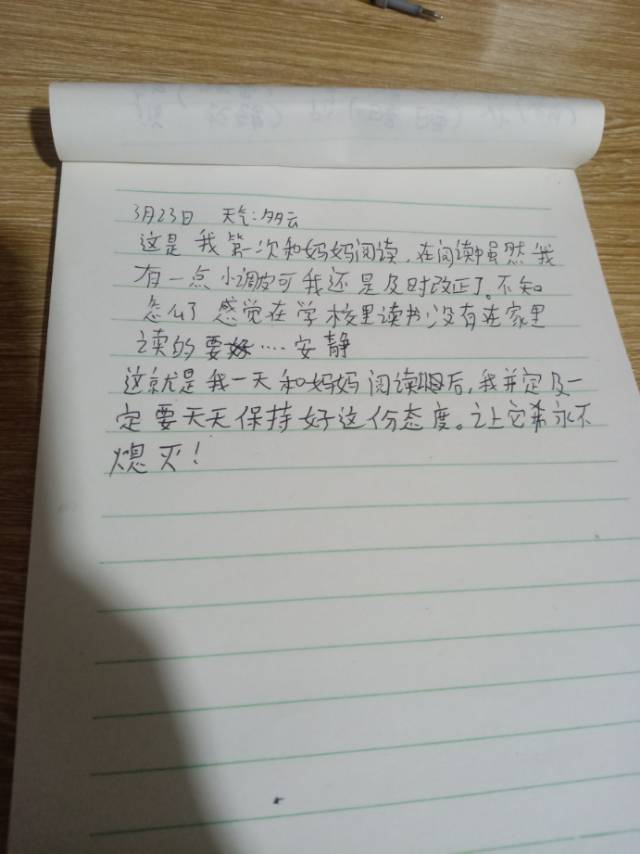 3月23日 天气:多云
这是我第一次和妈妈阅读,在阅读中虽然我
有一点小调皮可我还是及时改正了。不知
怎么了感觉在学校里读书没有在家里
读的要好....安静
这就是我一天和妈妈阅读
后,我并定及一
定要天天保持好这份态度。让它希永不
熄灭!